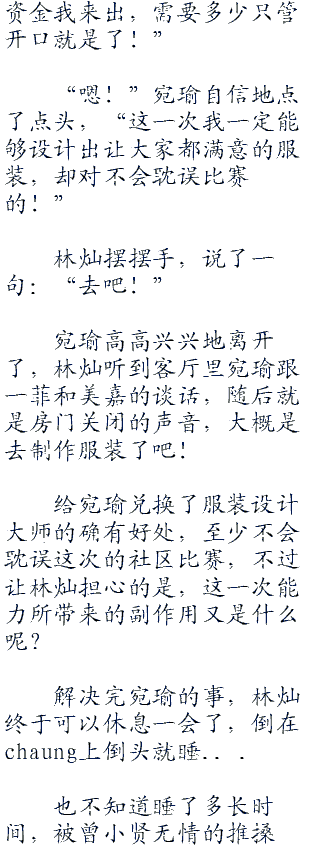 资金我来出，需要多少只管
开口就是了！”
“嗯！”宛瑜自信地点
了点头，“这一次我一定能
够设计出让大家都满意的服
装，却对不会耽误比赛
的！”
林灿摆摆手，说了一
句：“去吧！”
宛瑜高高兴兴地离开
了，林灿听到客厅里宛瑜跟
一菲和美嘉的谈话，随后就
是房门关闭的声音，大概是
去制作服装了吧！
给宛瑜兑换了服装设计
大师的确有好处，至少不会
耽误这次的社区比赛，不过
让林灿担心的是，这一次能
力所带来的副作用又是什么
呢？
解决完宛瑜的事，林灿
终于可以休息一会了，倒在
chaung上倒头就睡．．．
也不知道睡了多长时
间，被曾小贤无情的推搡